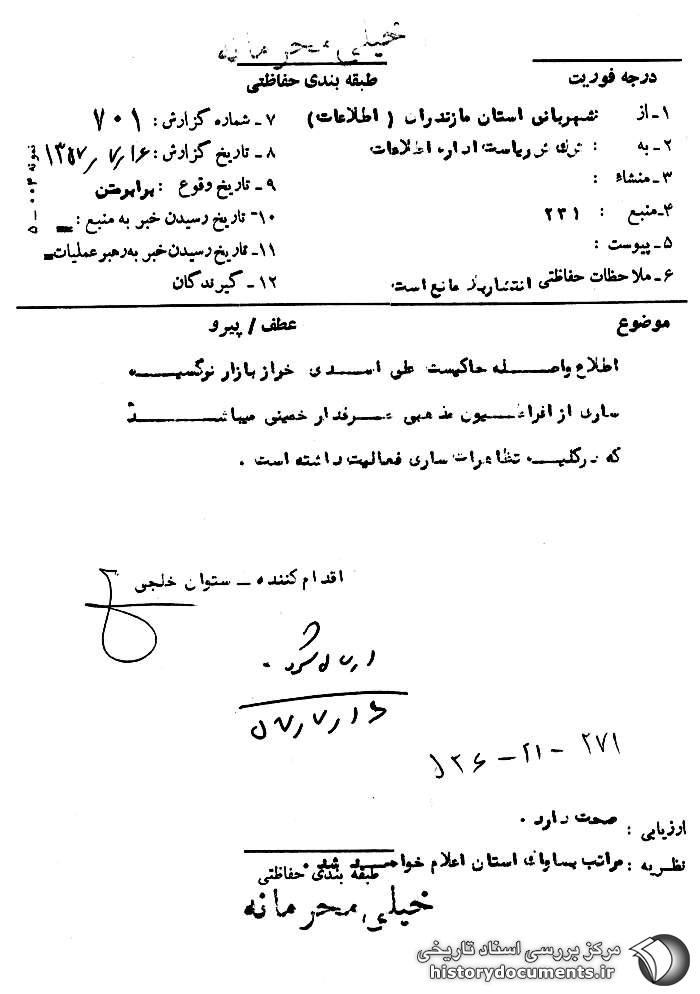 خیلی محرمانه
طبقه بندی حفاظتی
درجه فوریت
۱ـ از شهربانی استان مازندران ( اطلاعات )
۲ـ به : ریاست اداره اطلاعات
۳ـ منشاء :
۴ـ منبع : ۲۳۱
۵ـ پیوست :
۶ـ ملاحظات حفاظتی انتشارباز مانع است
۷ـ شماره گزارش : ۷۰۱
۸ـ تاریخ گزارش : ۱۳۵۷٫۷٫۱۶
۹ـ تاریخ وقوع : برابرمتن
۱۰ـ تاریخ رسیدن خبر به منبع : ـ
۱۱ـ تاریخ رسیدن خبر به رهبر عملیات ـ
۱۲ـ گیرندگان
نمونه ۰۰۴ ـ ۵
موضوع
عطف / پیرو
اطلاع واصله حاکیست علی اسدی خرازبازار نوگسیه
ساری از افراطیون مذهبی طرفدار خمینی میباشد
که درکلیه تظاهرات ساری فعالیت داشته است .
اقدام کننده ـ ستوان خلجی
ارسال گردید .
۵۷٫۷٫۱۶
۲۷۱ – ۲۱ –
ارزیابی : صحت دارد .
نظریه : مراتب بساواک استان اعلام خواهد شد .
طبقه بندی حفاظتی
خیلی محرمانه
مرکز بررسی اسناد تاریخی
historydocuments.ir